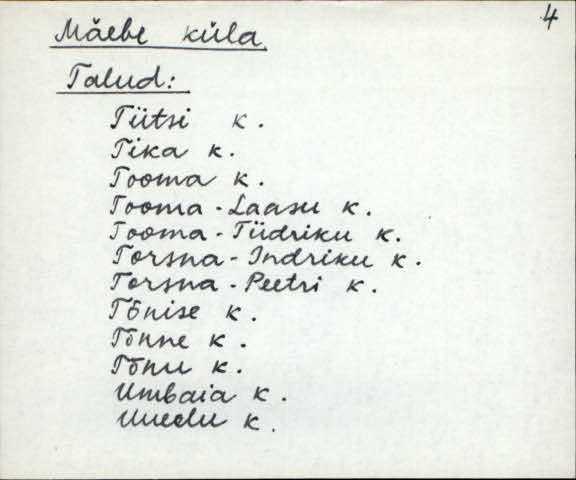 4
Mäebe küla.
Talud:
Tiitsi k.
Tika k.
Tooma k.
Tooma-Laasu k.
Tooma-Tiidriku k.
Torsna-Indriku k.
Torsna-Peetri k.
Tõnise k.
Tõnne k.
Tõnu k.
Umbaia k.
Uuelu k.